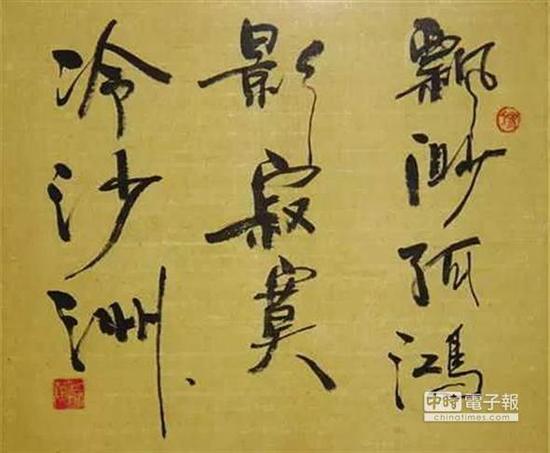 飄渺孤鴻
影寂寞
冷沙洲
中時電子報
chinatimes.com